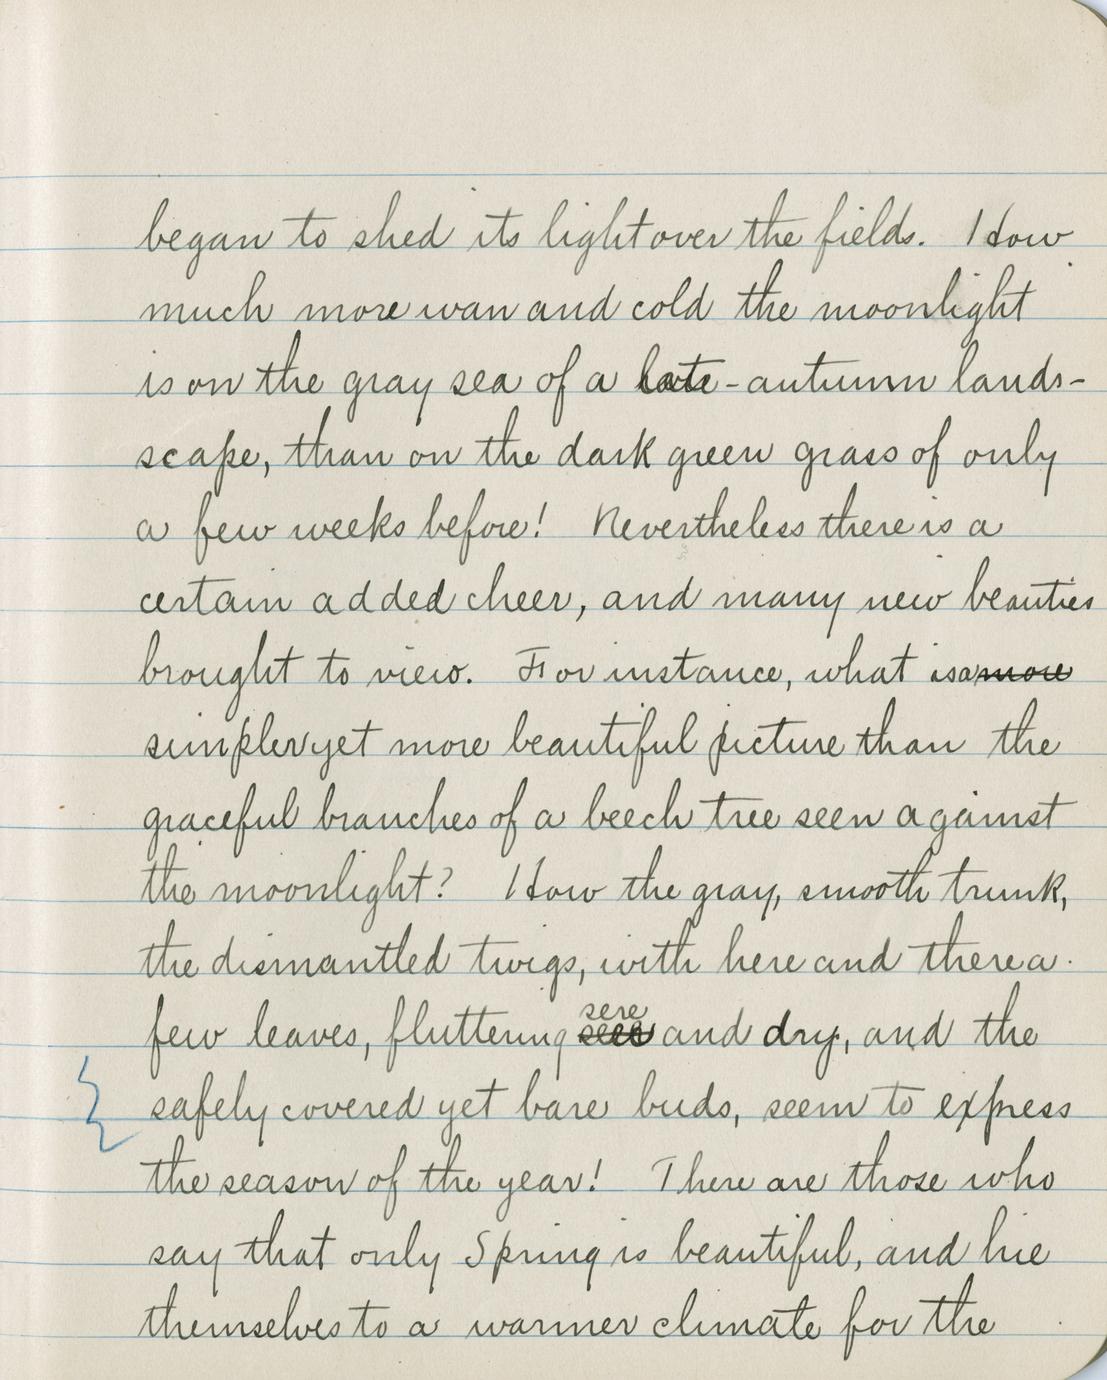 began to shed its light over the fields. How
much more wan and cold the moonlight
is on the gray sea of a late-autumn lands-
scape, than on the dark green grass of only
a few weeks before! Nevertheless there is a
certain added cheer, and many new beauties
brought to view. For instance, what is a more
simpler yet more beautiful picture than the
graceful branches of a beech tree seen against
the moonlight? How the gray, smooth trunk,
the dismantled twigs, with here and there a
sere
few leaves, fluttering and dry, and the
safely covered yet bare buds, seem to express
the season of the year! There are those who
say that only Spring is beautiful, and hie
themselves to a warmer climate for the